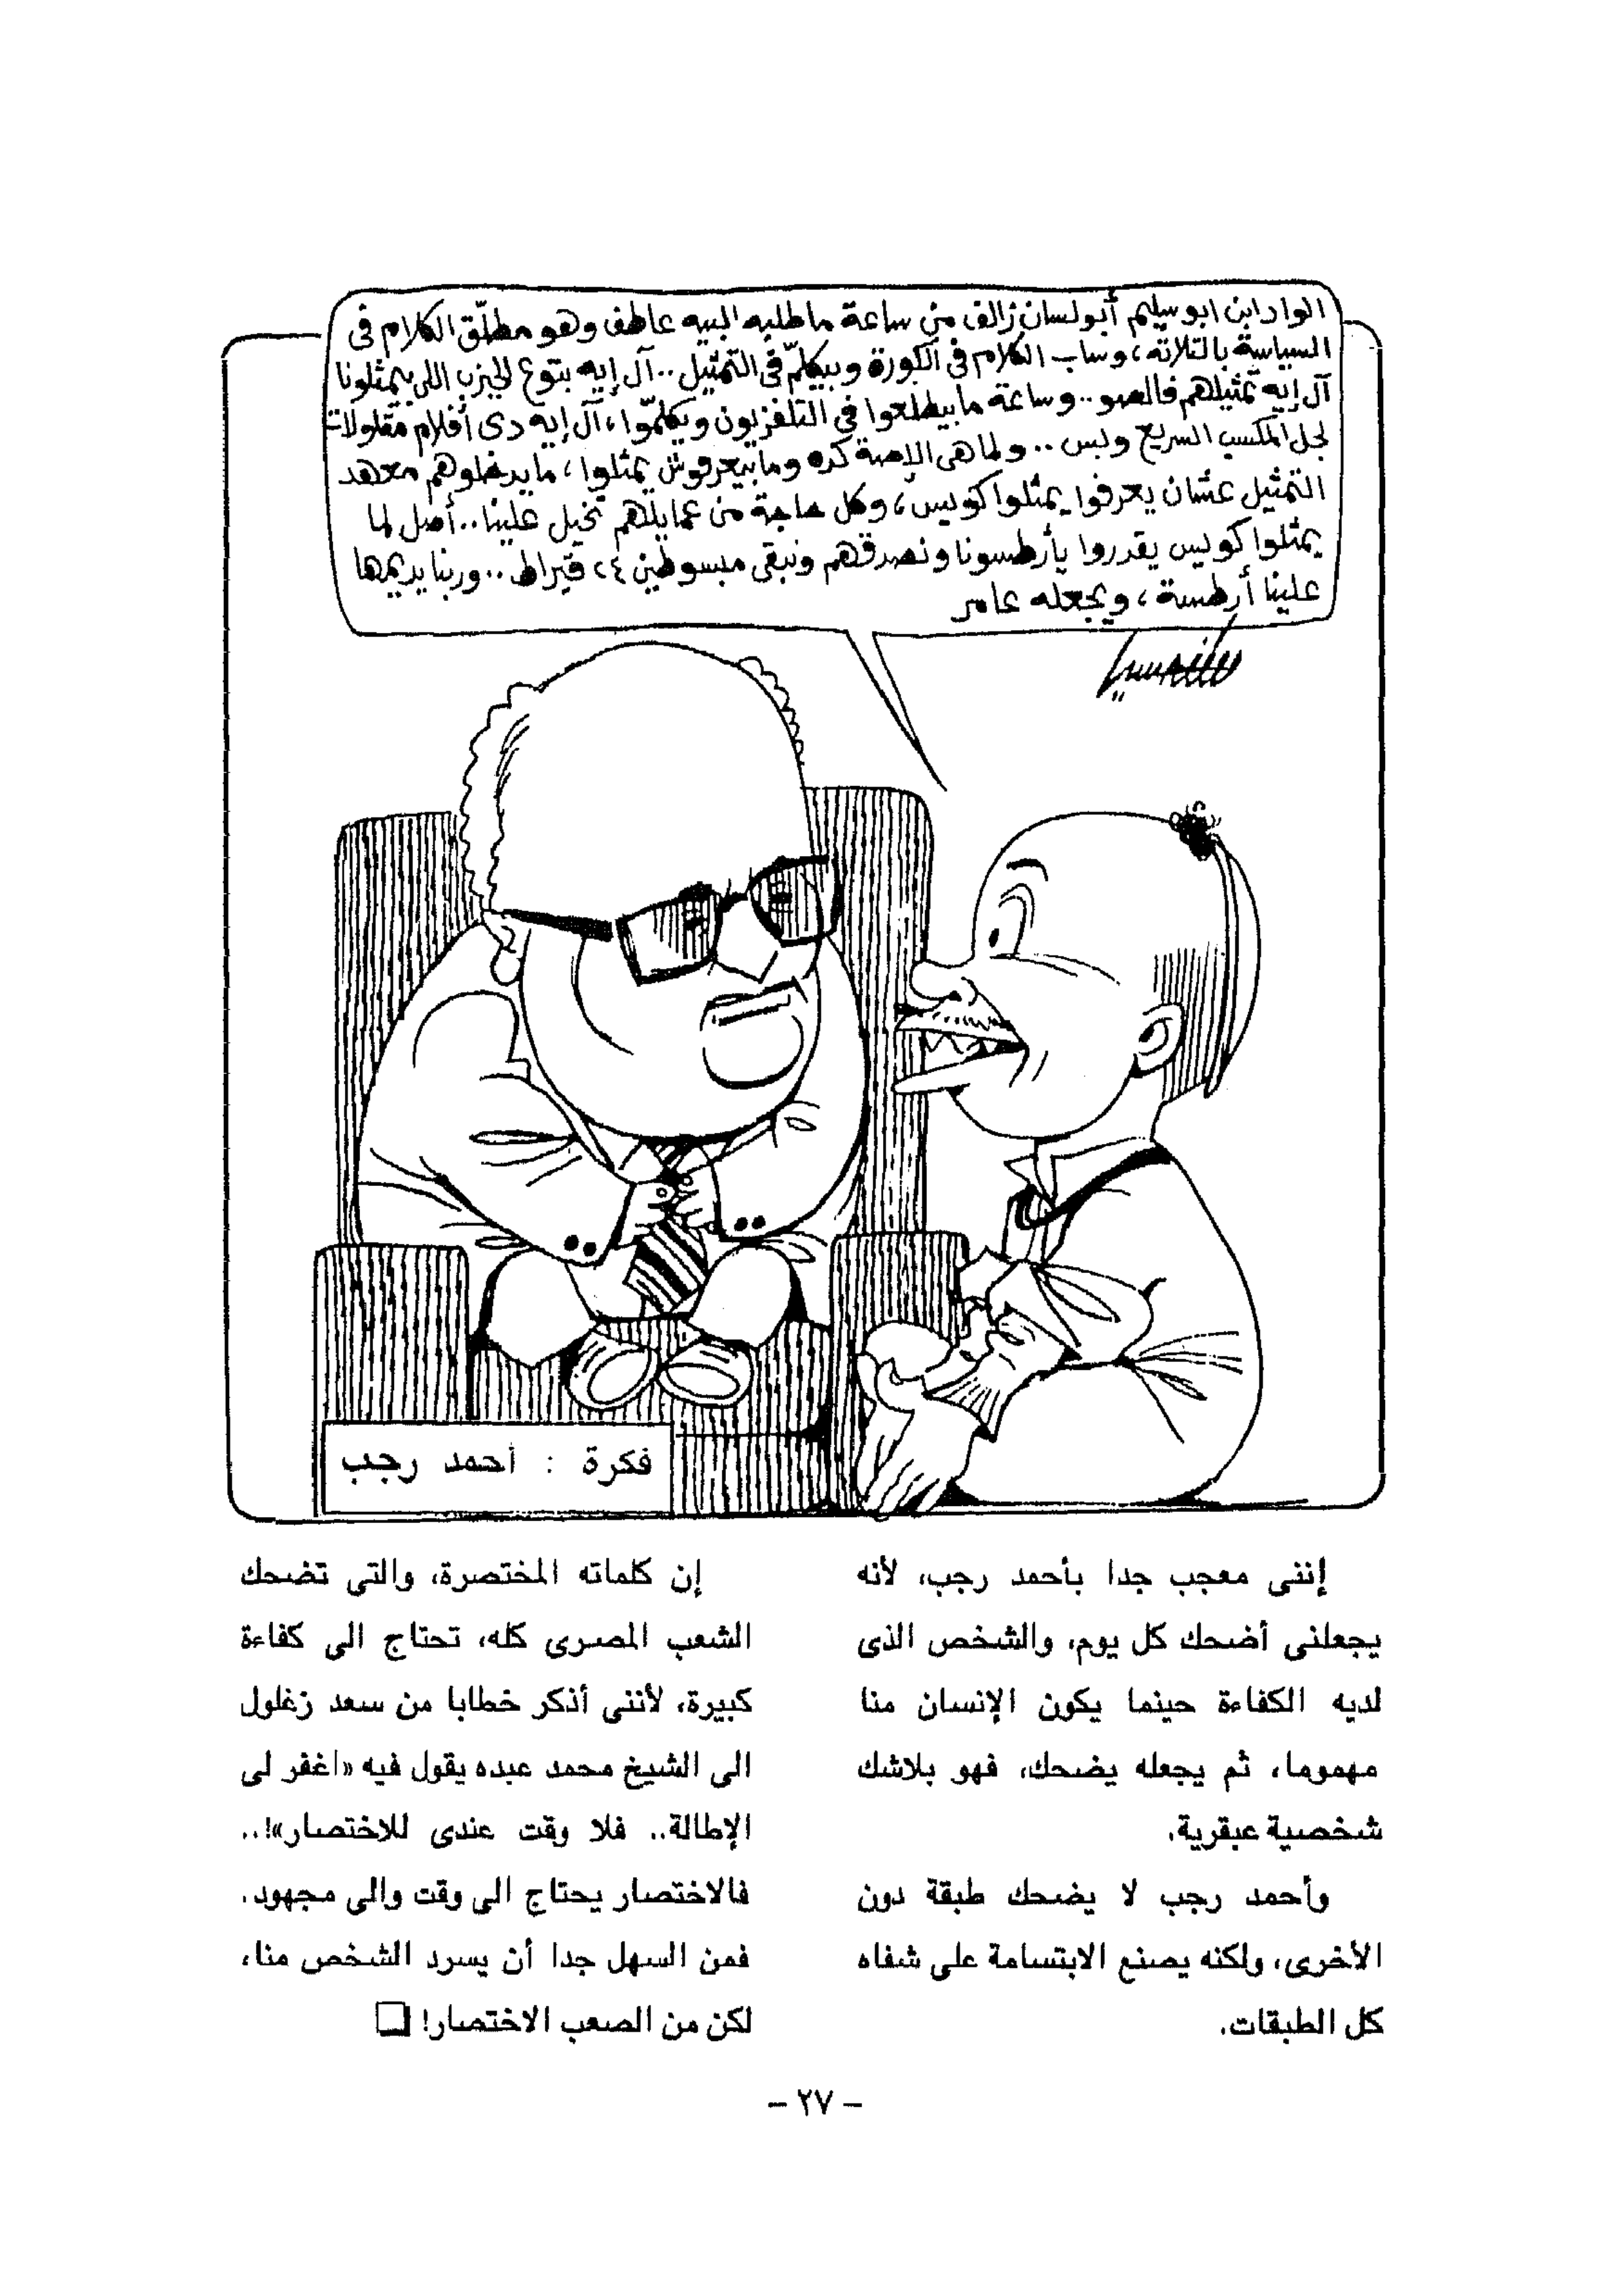 الواد ابن ابو سليم أبو لسان زالف من ساعة ما طلبه البيه عاطف وهو مطلّق الكلام فى
السياسة بالتلاته، وساب الكلام فى الكورة وبيكلّم فى التمثيل.. آل إيه بتوع الحزب اللى بيمثلونا
آل إيه تمثيلهم فالصو.. وساعة ما بيطلعوا فى التلفزيون ويكلمّوا، آل إيه دى أفلام مقاولات
لجل المكسب السريع وبس.. ولما هى الإصة كده وما بيعرفوش يمثلوا، ما يدخلوهم معهد
التمثيل عشان يعرفوا يمثلوا كويس، وكل حاجة من عمايلهم تخيل علينا.. أصل لما
يمثلوا كويس يقدروا يأرطسونا ونصدقهم ونبقى مبسوطين ٢٤ قيراط.. وربنا يديمها
علينا أرطسة، ويجعله عامر
فكرة : أحمد رجب
إننى معجب جدا بأحمد رجب، لأنه
يجعلنى أضحك كل يوم، والشخص الذى
لديه الكفاءة حينما يكون الإنسان منا
مهموما، ثم يجعله يضحك، فهو بلاشك
شخصية عبقرية.
وأحمد رجب لا يضحك طبقة دون
الأخرى، ولكنه يصنع الابتسامة على شفاه
كل الطبقات.
إن كلماته المختصرة، والتى تضحك
الشعب المصرى كله، تحتاج الى كفاءة
كبيرة، لأننى أذكر خطابا من سعد زغلول
الى الشيخ محمد عبده يقول فيه «اغفر لى
الإطالة.. فلا وقت عندى للاختصار»!..
فالاختصار يحتاج الى وقت والى مجهود.
فمن السهل جدا أن يسرد الشخص منا،
لكن من الصعب الاختصار!
– ٢٧ –